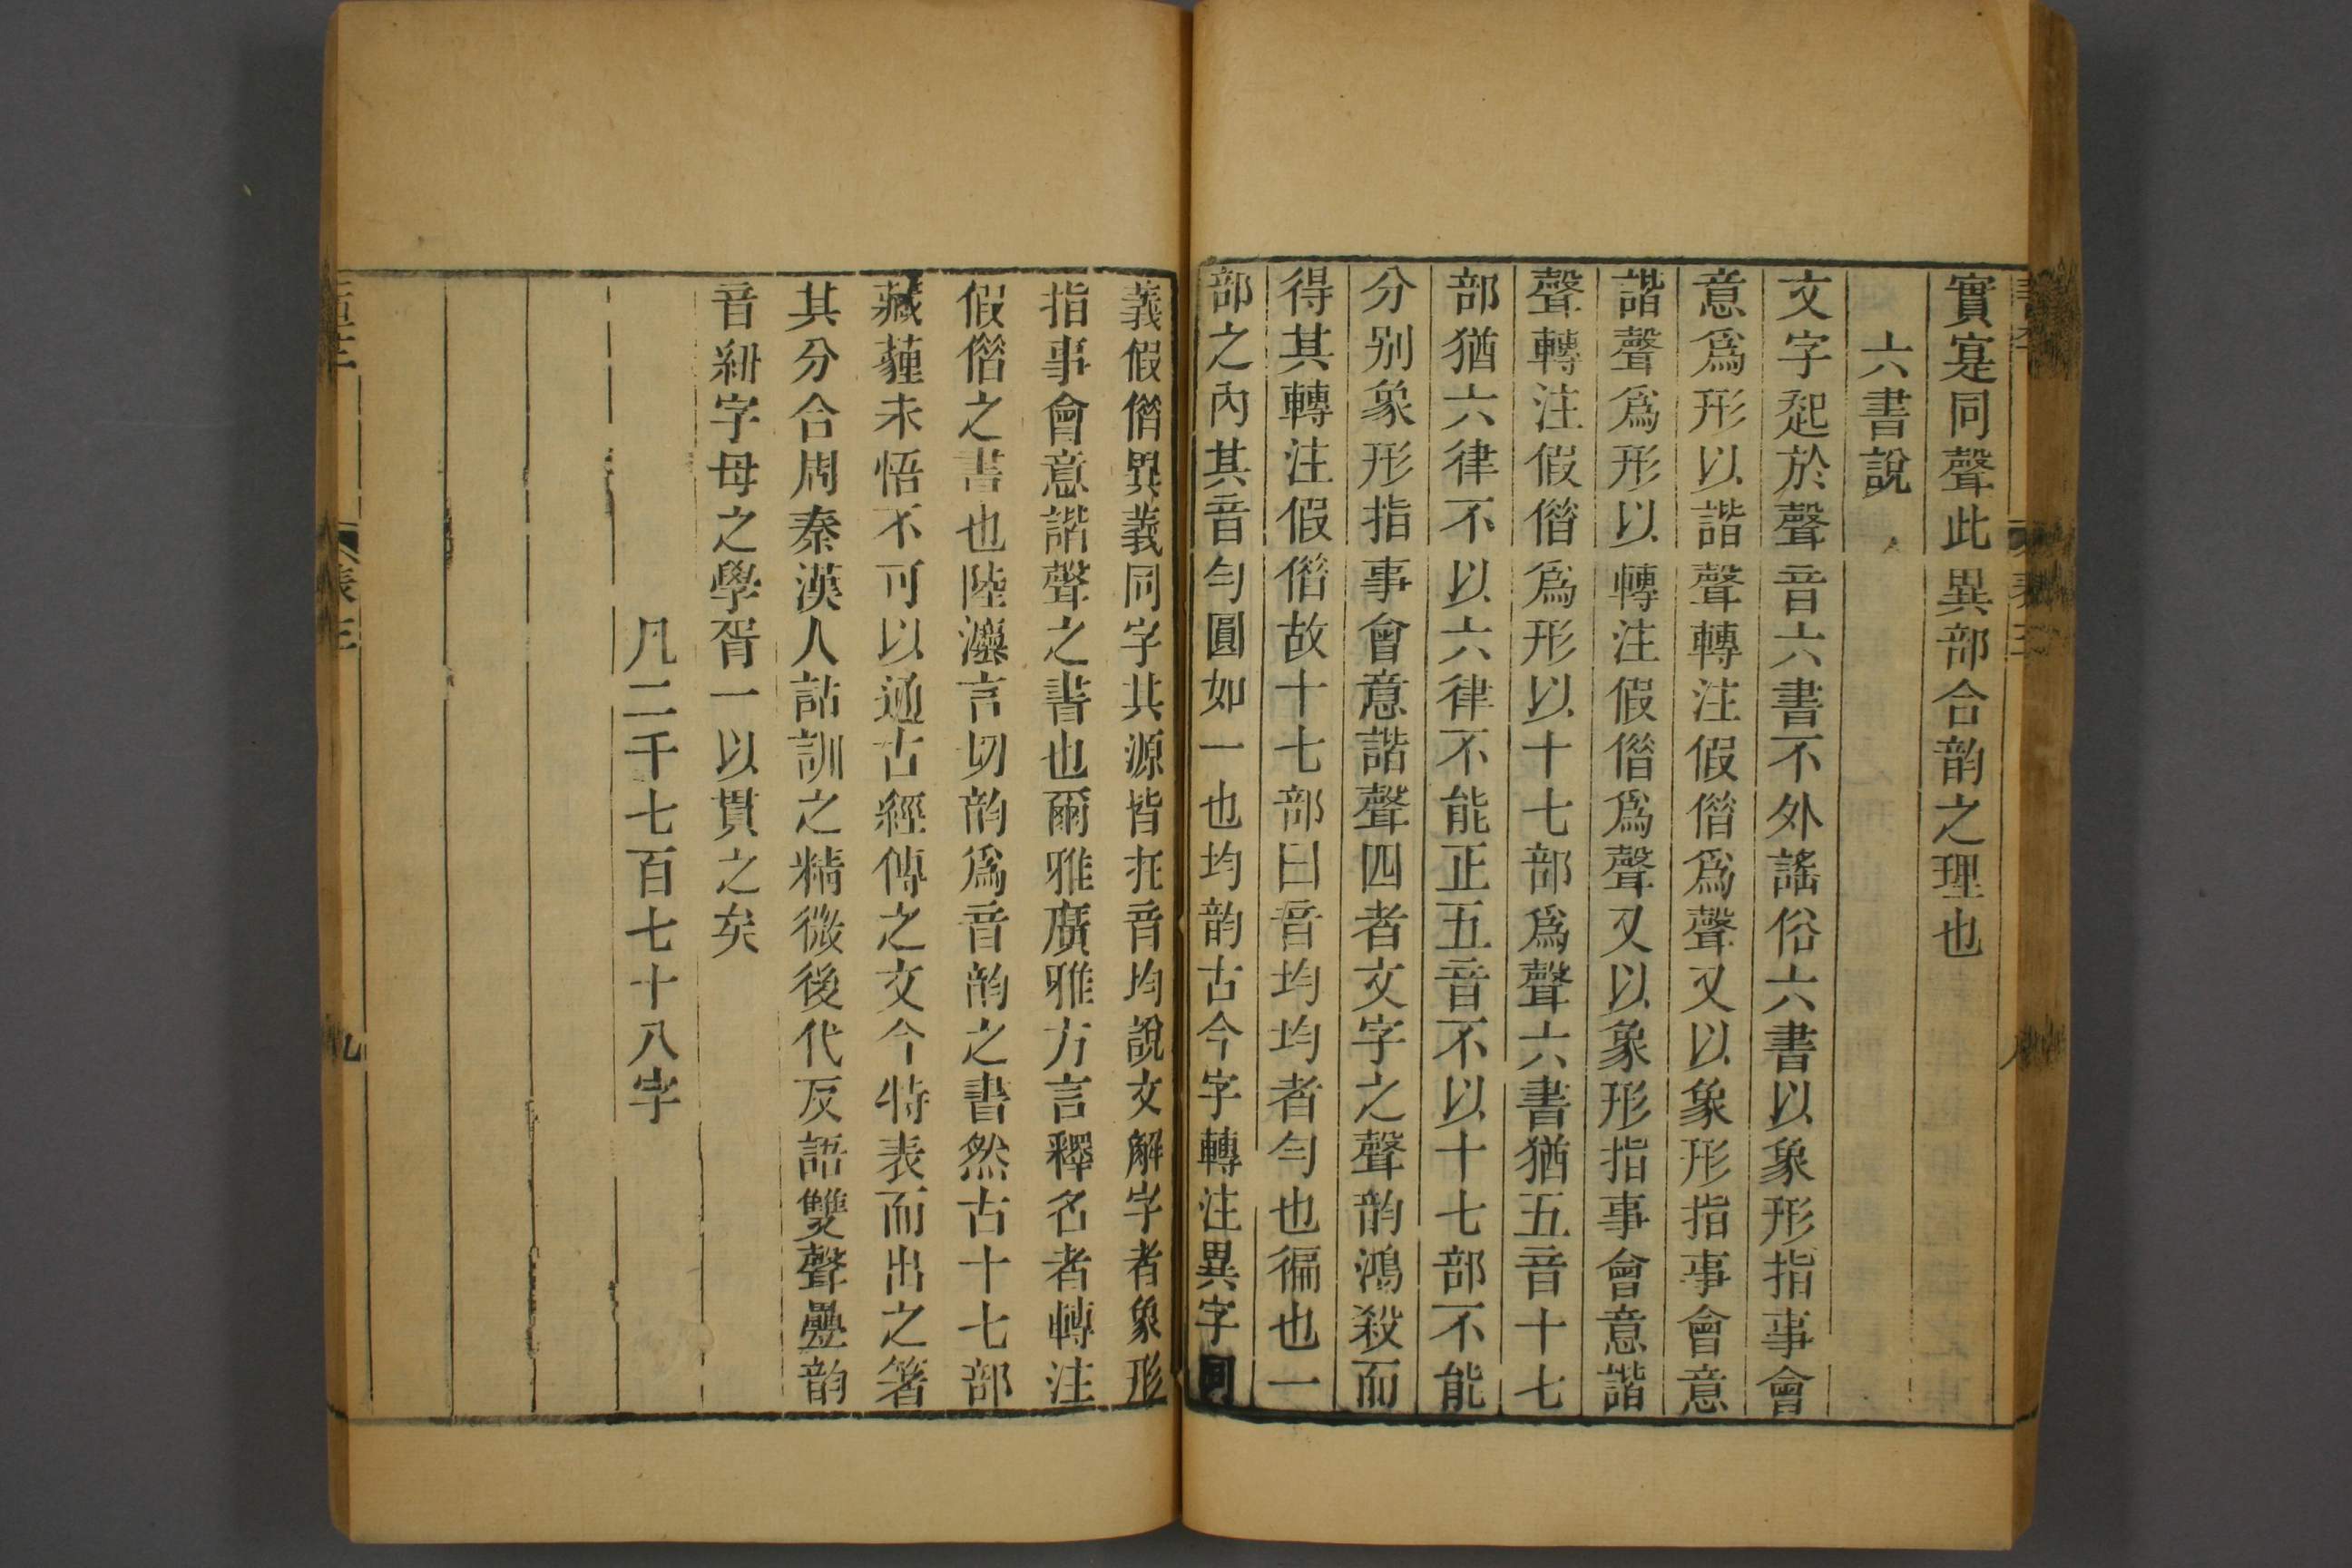 實寔同聲此異部合韵之理也
六書說
文字起於聲音六書不外謠俗六書以象形指事會
意爲形以諧聲轉注假借爲聲又以象形指事會意
諧聲爲形以轉注假借爲聲又以象形指事會意諧
聲轉注假借爲形以十七部爲聲六書猶五音十七
部猶六律不以六律不能正五音不以十七部不能
分别象形指事會意諧聲四者文字之聲韵鴻殺而
得其轉注假借故十七部曰音均均者匀也徧也一
部之內其音匀圓如一也均韵古今字轉注異字同
義假借異義同字其源皆在音均說文解字者象形
指事會意諧聲之書也爾雅廣雅方言釋名者轉注
假借之書也陸灋言切韵爲音韵之書然古十七部
藏薶未悟不可以通古經傳之文今特表而出之箸
其分合周秦漢人詁訓之精微後代反語雙聲疊韵
音紐字母之學胥一以貫之矣
凡二千七百七十八字
表三
九